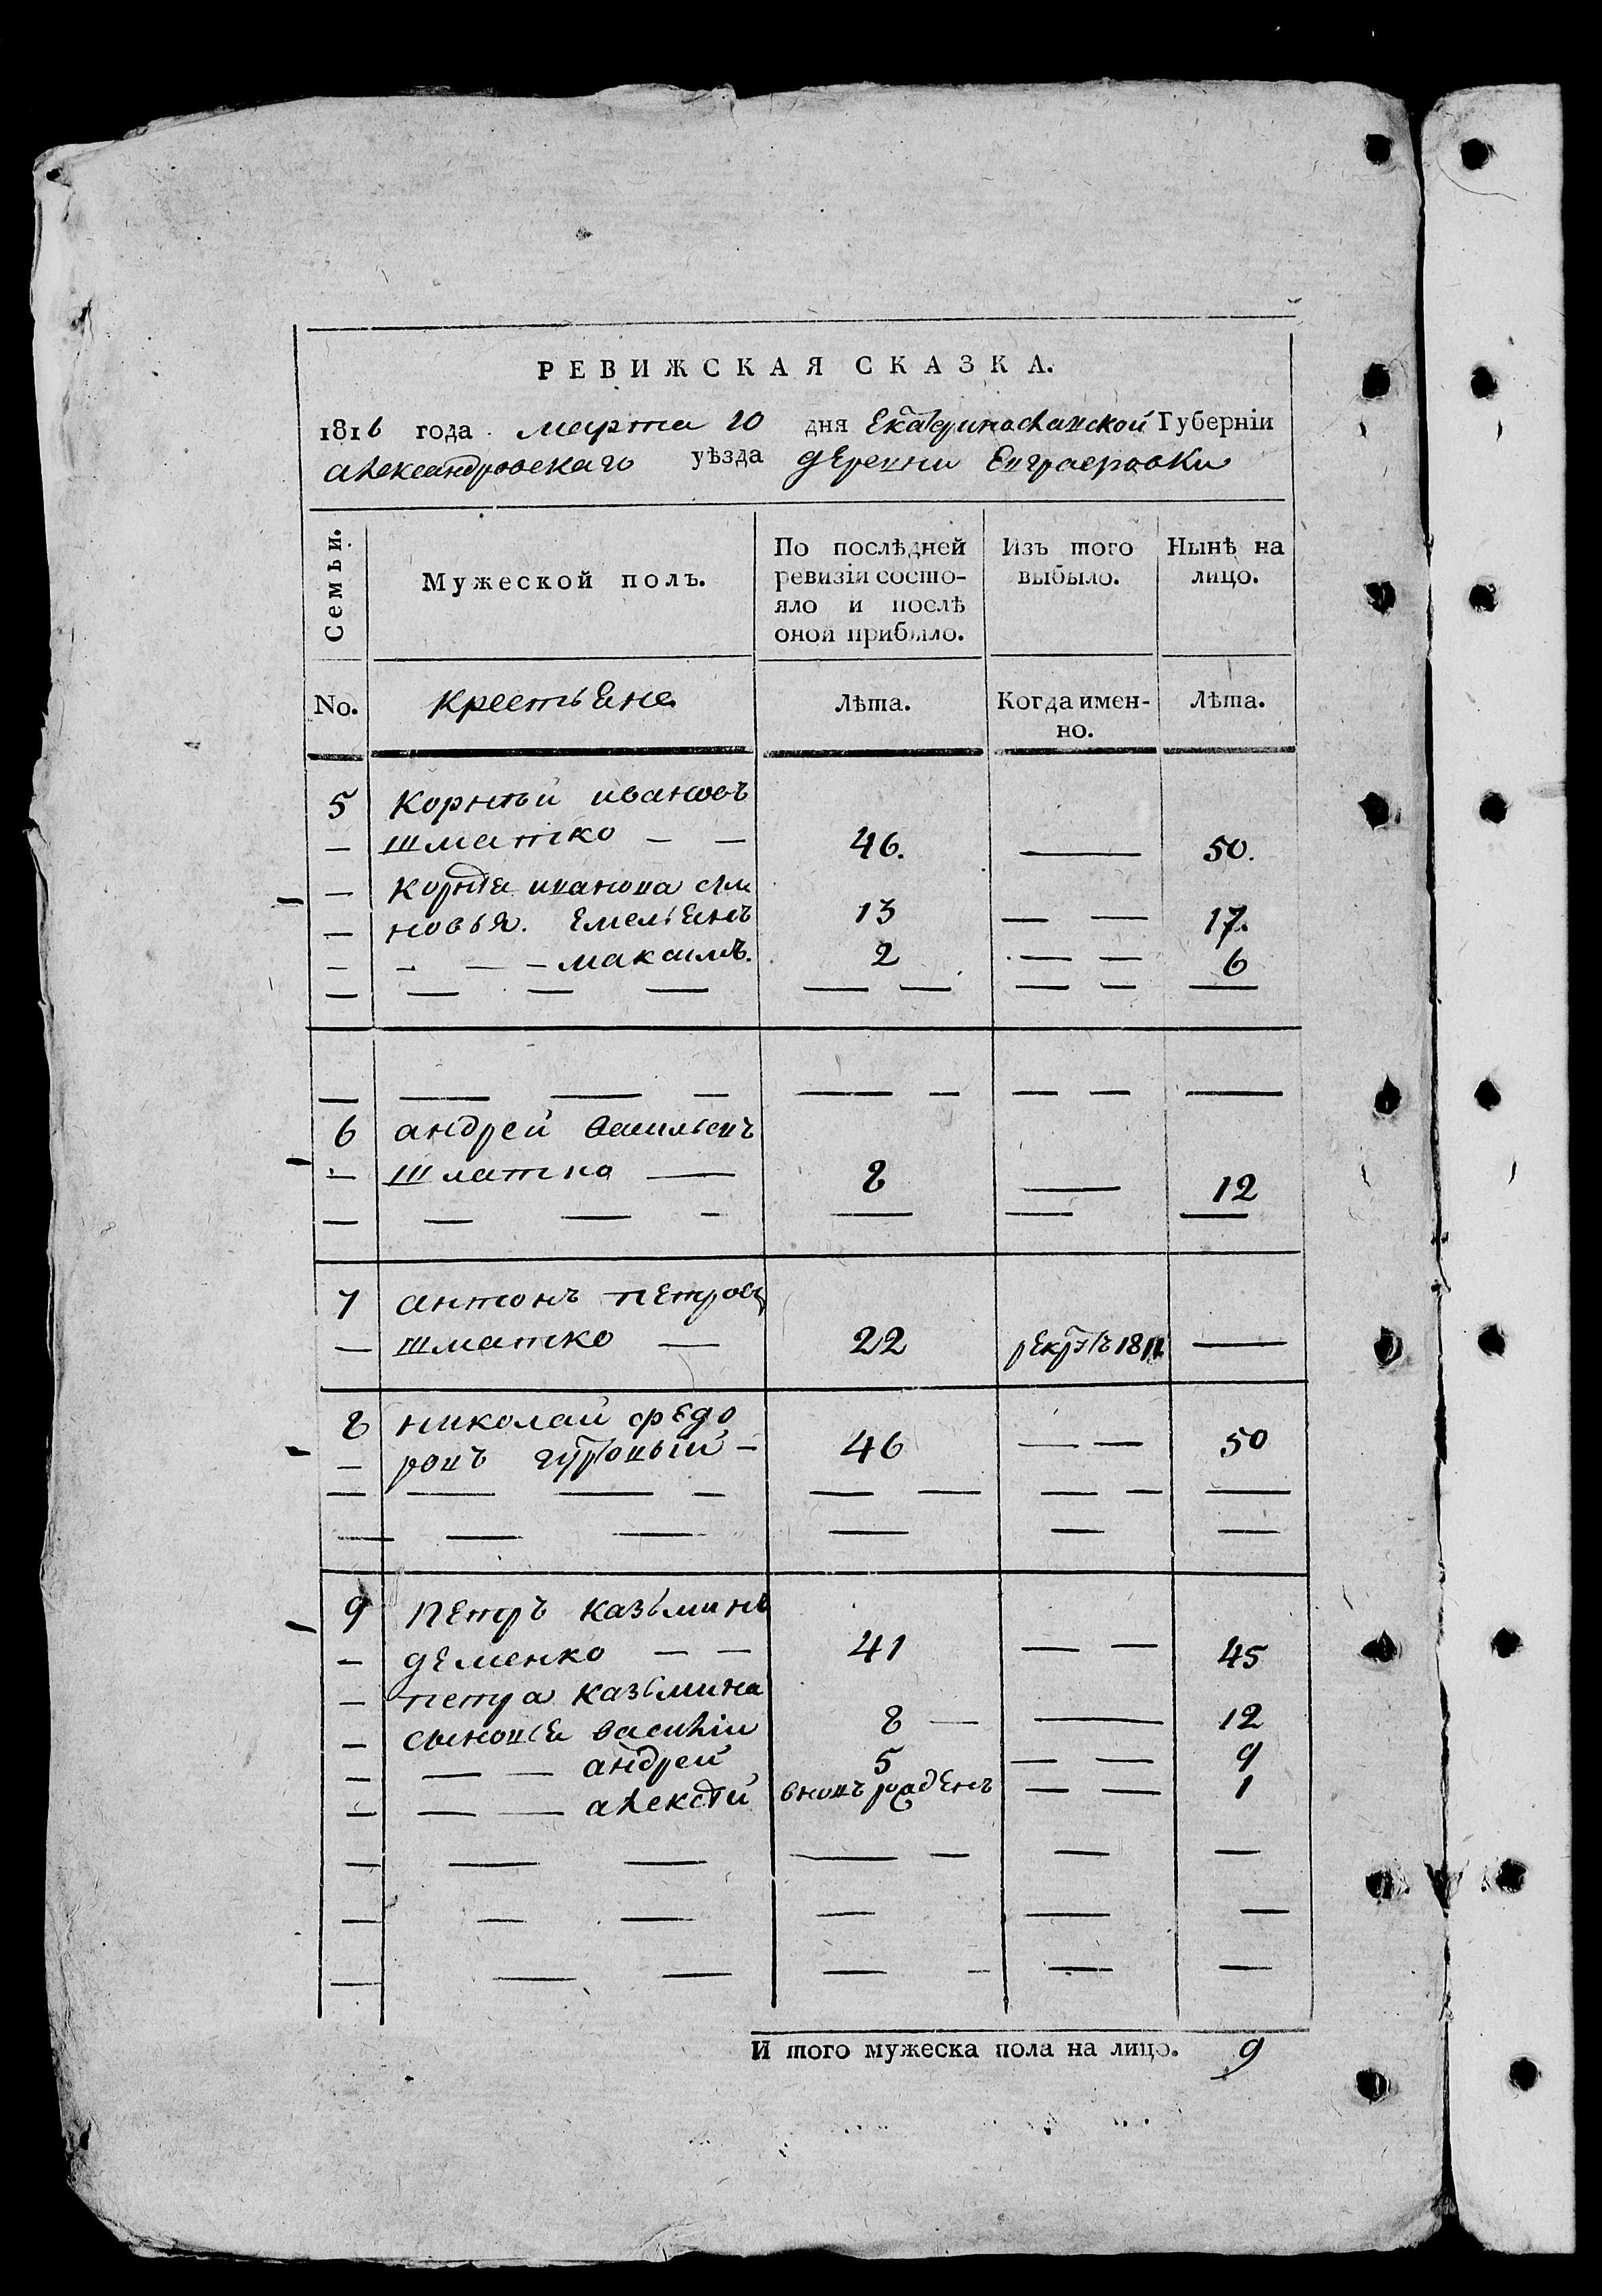 РЕВИЖСКАЯ СКАЗКА.
1816 года марта 20 дня Екатеринославской Губерніи
александровскаго уѣзда деревни Евграфовки
Семьи.
Мужеской полъ.
По послѣдней ревизіи состояло и послѣ оной прибыло.
Изъ того выбыло.
Нынѣ на лицо.
No. крестьяне Лѣта. Когда именно. Лѣта.
5 Корнѣй ивановъ
— шматко — — 46. — 50.
— Корнѣя иванова сы
— новья. Емельянъ 13 — — 17.
— — — — максимъ. 2 — — 6
6 андрей васильевъ
— шматко — 8 — 12
7 антонъ петровъ
— шматко — 22 рекрутъ 1811 —
8 николай федо
— ровъ — 46 — — 50
9 Петръ казьминъ
— деменко — — 41 — — 45
— петра казьмина
— сыновья василій 8 — — 12
— — — андрей 5 — — 9
— — — алексѣй вновъ рожденъ — — 1
И того мужеска пола на лицо. 9